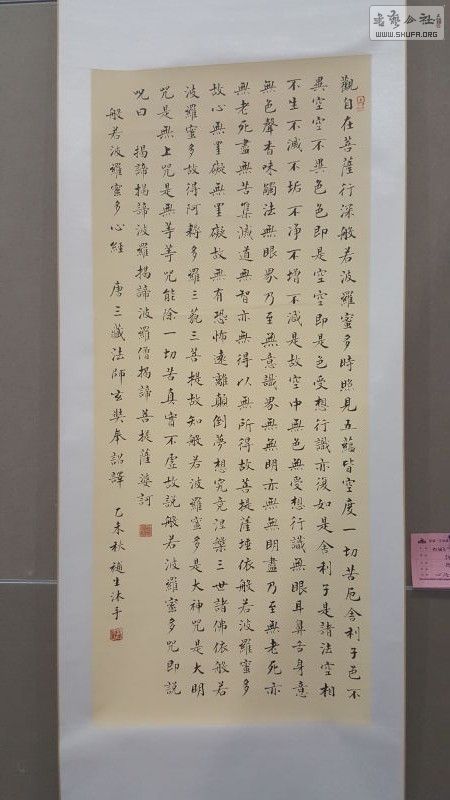 觀自在菩薩行深般若波羅蜜多時照見五蘊皆空度一切苦厄舍利子色不
異空空不異色色即是空空即是色受想行識亦復如是舍利子是諸法空相
不生不滅不垢不淨不增不減是故空中無色無受想行識無眼耳鼻舌身意
無色聲香味觸法無眼界乃至無意識界無無明亦無無明盡乃至無老死亦
無老死盡無苦集滅道無智亦無得以無所得故菩提薩埵依般若波羅蜜多
故心無罣礙無罣礙故無有恐怖遠離顛倒夢想究竟涅槃三世諸佛依般若
波羅蜜多故得阿耨多羅三藐三菩提故知般若波羅蜜多是大神咒是大明
咒是無上咒是無等等咒能除一切苦真實不虛故說般若波羅蜜多咒即說
咒曰 揭諦揭諦波羅揭諦波羅僧揭諦菩提薩婆訶
般若波羅蜜多心經 唐三藏法師玄奘奉詔譯 乙未秋 生沐手
书艺公社
WWW.SHUFA.ORG